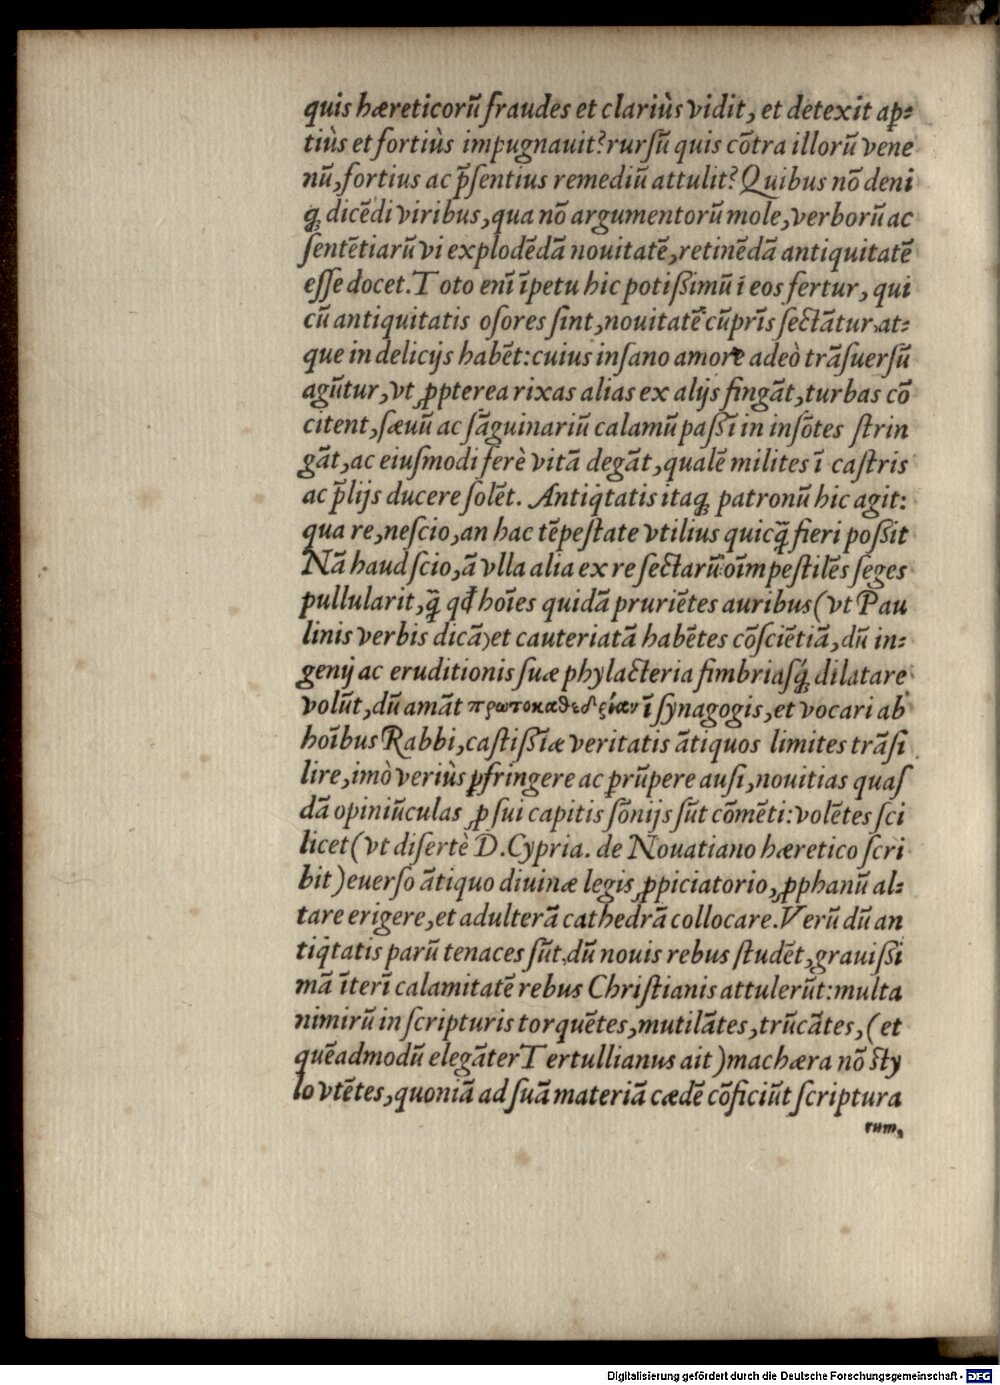 quis hæreticorū fraudes et clariùs vidit, et detexit ap⸗
tiùs et fortiùs impugnauit? rursū quis cōtra illorū vene
nū, fortius ac p̄sentius remediū attulit? Quibus nō deni
q́₃ dicēdi viribus, qua nō argumentorū mole, verborū ac
sentētiarū vi explodēdā nouitatē, retinēdā antiquitatē
esse docet. Toto enī īpetu hic potißimū ī eos fertur, qui
cū antiquitatis osores sint, nouitatē cūprīs sectātur, at⸗
que in delicijs habēt: cuius insano amore adeò trāsuersū
agūtur, vt ꝓpterea rixas alias ex alijs fingāt, turbas cō
citent, sæuū ac sāguinariū calamū paßī in insōtes strin
gāt, ac eiusmodi ferè vitā degāt, qualē milites ī castris
ac p̄lijs ducere solēt. Antiq̄tatis itaq₃ patronū hic agit:
qua re, nescio, an hac tēpestate vtilius quicq̄ fieri poßit
Nā haud scio, ā vlla alia ex re sectarū oīm pestilēs seges
pullularit, q̄ qđ hoīes quidā pruriētes auribus (vt Pau
linis verbis dicā) et cauteriatā habētes cōsciētiā, dū in⸗
genij ac eruditionis suæ phylacteria fimbriasq́₃ dilatare
volūt, dū amāt πρωτοκαθεδρίαν ī synagogis, et vocari ab
hoībus Rabbi, castißīæ veritatis ātiquos limites trāsi
lire, imò veriùs ꝑfringere ac ꝑrūpere ausi, nouitias quas
dā opiniūculas ꝓ sui capitis sōnijs sūt cōmēti: volētes sci
licet (vt disertè D. Cypria. de Nouatiano hæretico scri
bit) euerso ātiquo diuinæ legis ꝓpiciatorio, ꝓphanū al⸗
tare erigere, et adulterā cathedrā collocare. Verū dū an
tiq̄tatis parū tenaces sūt, dū nouis rebus studēt, grauißi
mā īterī calamitatē rebus Christianis attulerūt: multa
nimirū in scripturis torquētes, mutilātes, trūcātes, (et
quēadmodū elegāter Tertullianus ait) machæra nō sty
lo vtētes, quoniā ad suā materiā cædē cōficiūt scriptura
rum,
Digitalisierung gefördert durch die Deutsche Forschungsgemeinschaft - DFG